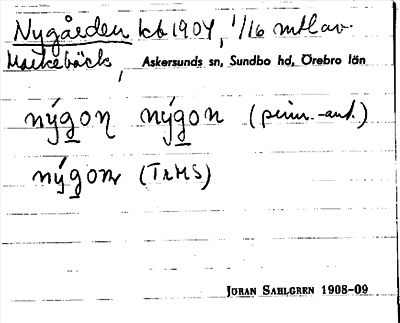 Nygården kb 1904, 1/16 mtl av
Markebäck, Askersunds sn, Sundbo hd, Örebro län
nýgon nýgon
nýgon (TrMS)
JÖRAN SAHLGREN 1908-09